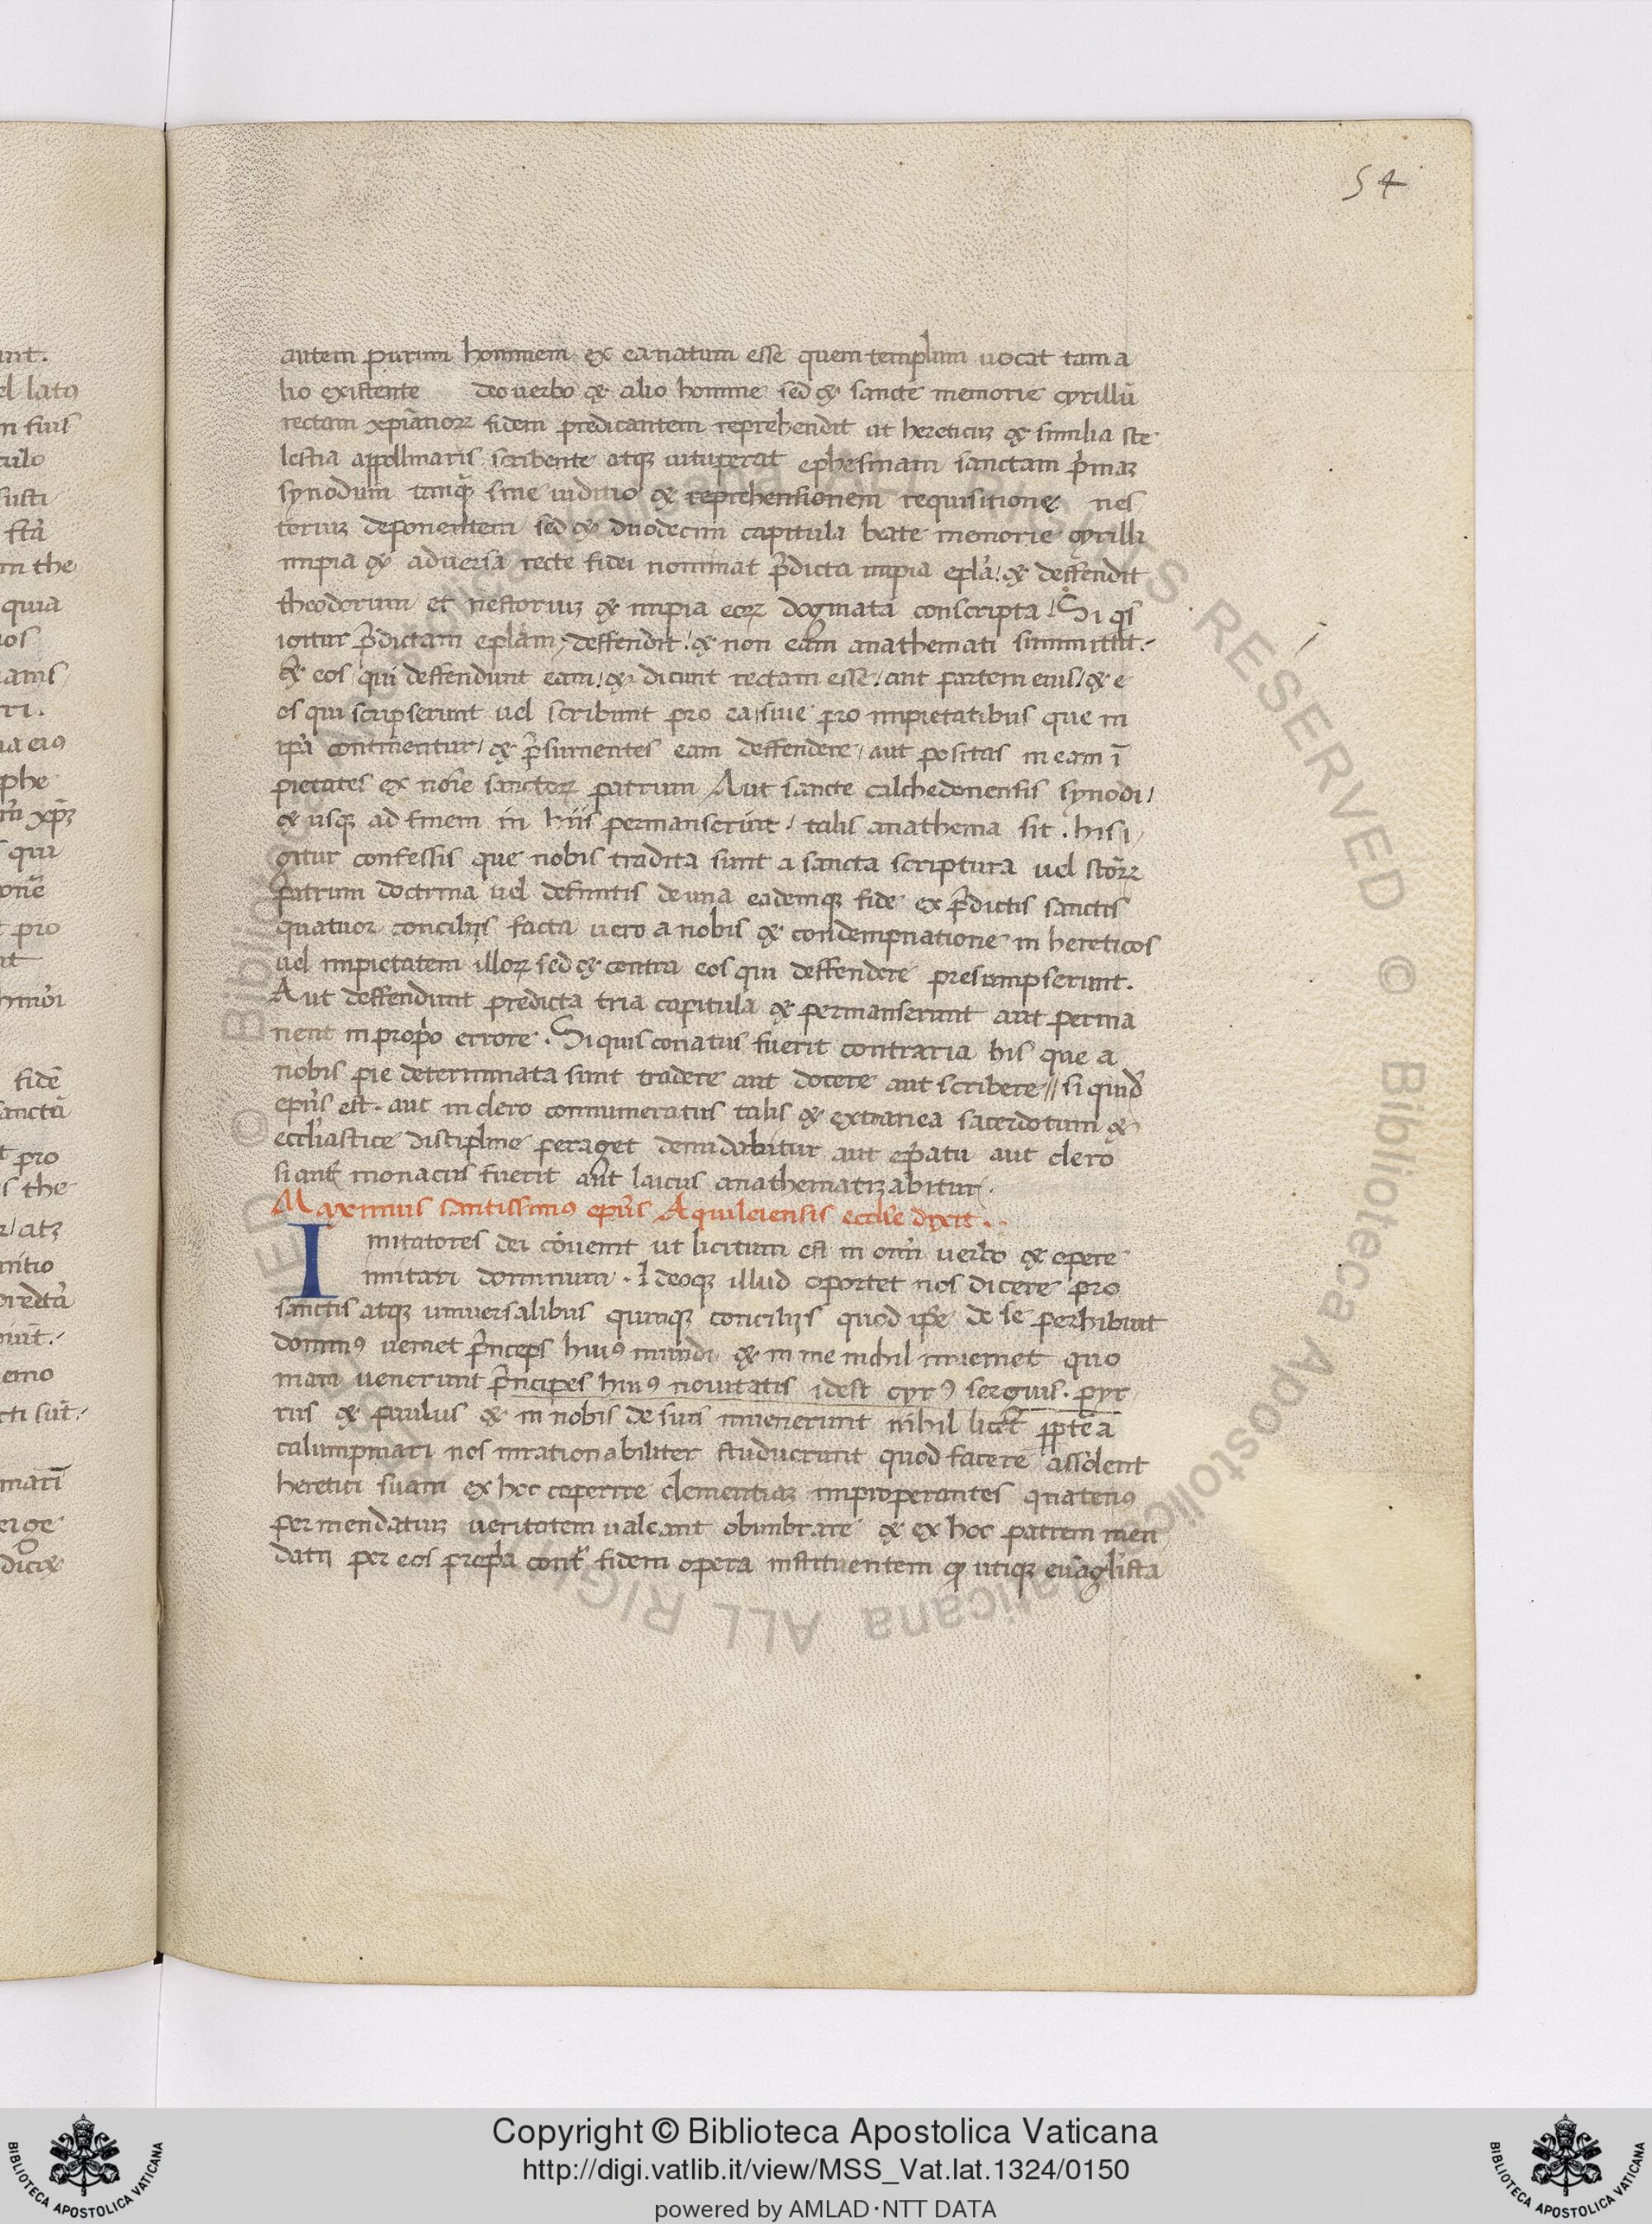 54
autem purum hominem ex ea natum esse quem templum uocat tam a
lio existente deo uerbo & alio homine sed & sancte memorie cyrillū
rectam xp̄ianoꝝ fidem predicantem reprehendit ut hereticuꝫ & similia sce
lestia appollinaris scribente atqꝫ uituperat ephesinam sanctam p̄maꝫ
synodum tanq̄ sine iuditio & reprehensionem requisitione nes
toriuꝫ deponentem sed & duodecim capitula beate memorie cyrilli
impia & aduersa recte fidei nominat p̄dicta impia epl̄a / & deffendit
theodorum et nestoriuꝫ & impia eoꝝ dogmata conscripta / Si qͥs
igitur p̄dictam epl̄am / deffendit / & non eam anathemati summittit.
& eos qui deffendunt eam / & dicunt rectam esse / aut partem eius / & e
os qui scripserunt uel scribunt pro ea / siue pro impietatibus que in
ip̄a continentur / & p̄sumentes eam deffendere / aut positas in eam ī
pietates ex noīe sanctoꝝ patrum Aut sancte calchedonensis synodi /
& usqꝫ ad finem in hiis permanserūt / talis anathema sit . his i
gitur confessis que nobis tradita sunt a sancta scriptura uel sctōꝝ
patrum doctrina uel definitis de una eademqꝫ fide ex p̄dictis sanctis
quatuor conciliis facta uero a nobis & condempnatione in hereticos
uel impietatem illoꝝ sed & contra eos qui deffendere presumpserunt.
Aut deffendunt predicta tria capitula & permanserunt aut perma
nent in prop̄o errore . Si quis conatus fuerit contraria his que a
nobis pie determinata sunt tradere aut docere aut scribere // si quid̄
ep̄us est . aut in clero connumeratus talis & extranea sacerdotum &
eccl̄iastice discipline peraget denudabitur aut ep̄atu aut clero
si aut̄ monacus fuerit aut laicus anathematizabitur.
Maximus santissimꝰ ep̄us Aquileiensis eccl̄ie dixit .
Imitatores dei cōuenit ut licitum est in om̄i uerbo & opere
imitari dominum . Ideoqꝫ illud oportet nos dicere pro
sanctis atqꝫ uniuersalibus quinqꝫ conciliis quod ip̄e de se perhibuit
dominꝰ ueniet p̄nceps huiꝰ mundi & in me nichil inueniet quo
niam uenerunt p̄ncipes huiꝰ nouitatis idest cyrꝰ sergius . pyr
rus & paulus & in nobis de suis inuenerunt nihil licet ꝓptēa
calumpniari nos inrationabiliter studuerunt quod facere assolent
heretici suam ex hoc coperire clementiaꝫ improperantes quatenꝰ
per mendatiuꝫ ueritatem ualeant obumbrare & ex hoc patrem men
datii per eos prop̄a contͣ fidem opera instituentem qͦ utiqꝫ euāgl̄ista
Copyright © Biblioteca Apostolica Vaticana
http://digi.vatlib.it/view/MSS_Vat.lat.1324/0150
powered by AMLAD·NTT DATA
BIBLIOTECA APOSTOLICA VATICANA
BIBLIOTECA APOSTOLICA VATICANA